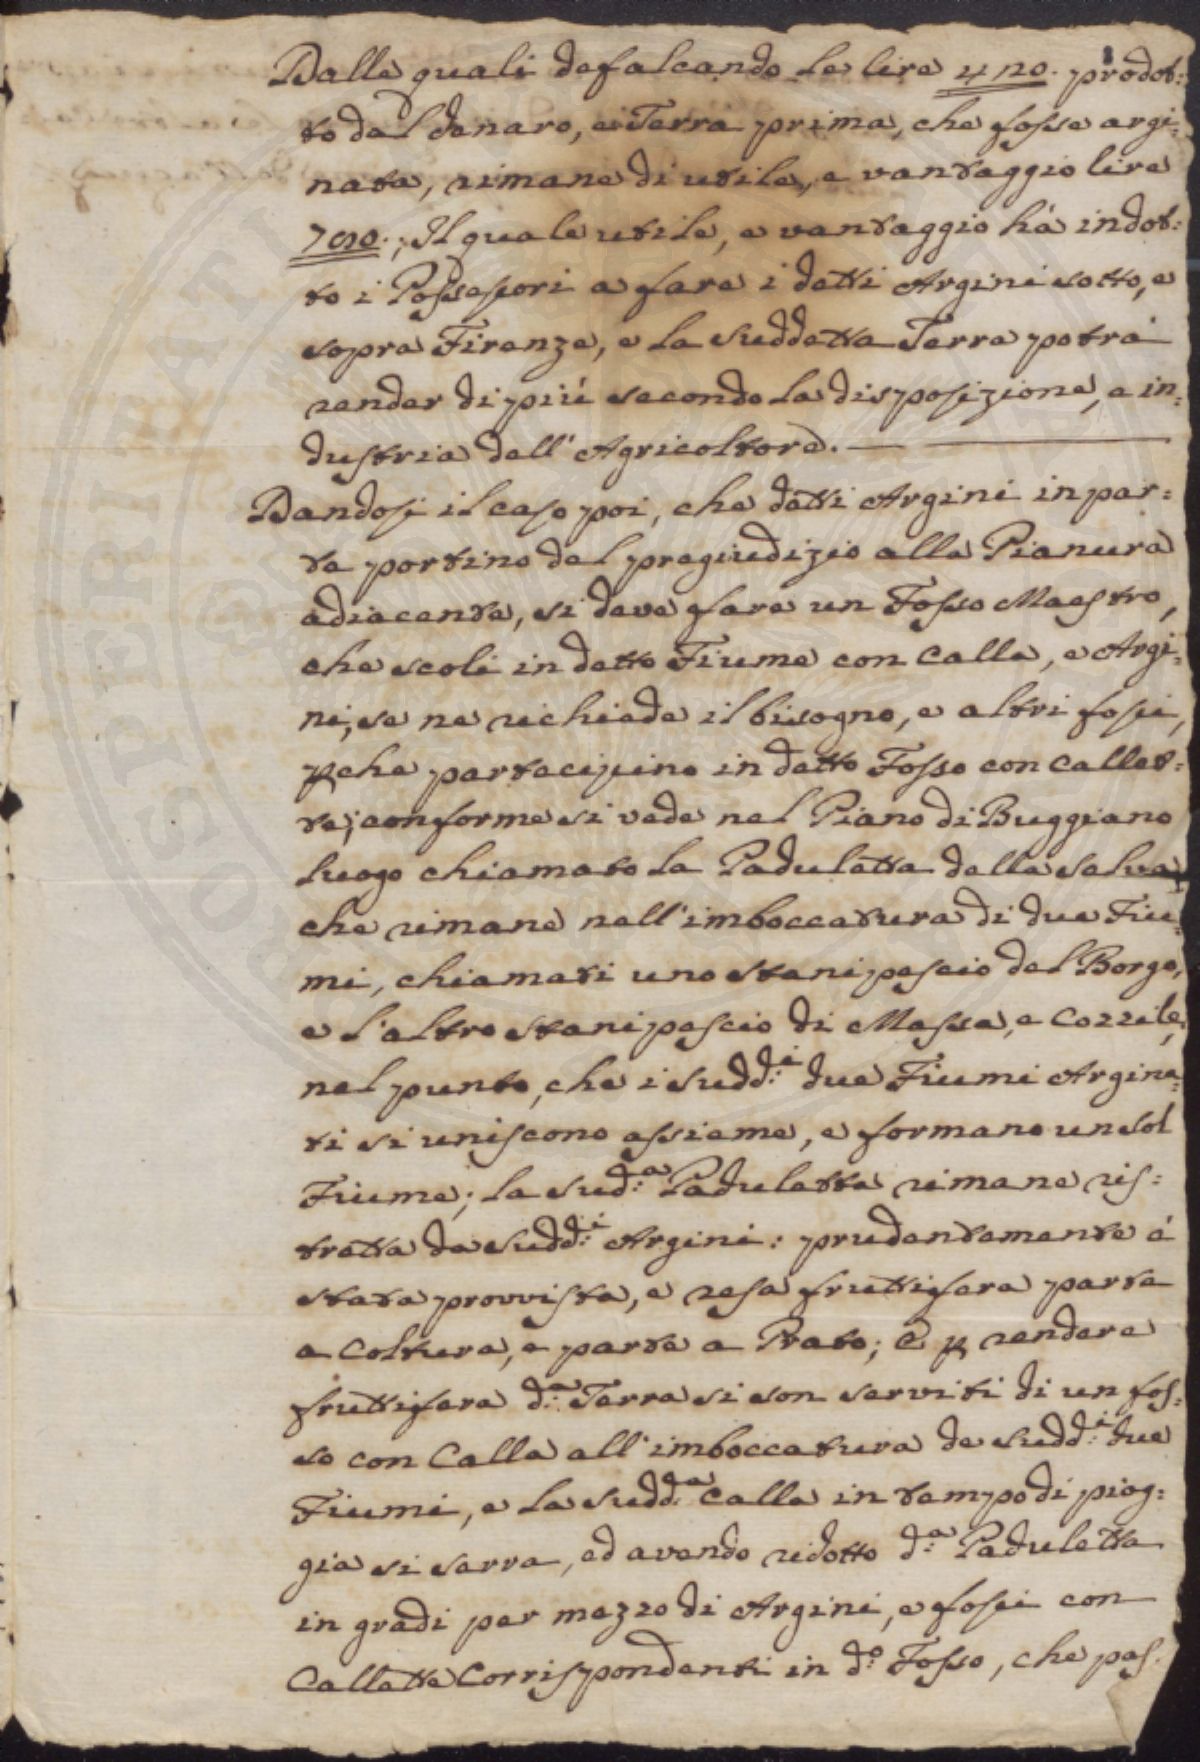 Dalle quali defalcando le lire 4120. prodot:
to dal denaro, e Terra prima, che fosse argi:
nata, rimane di utile, e vantaggio lire
7010.; Il quale utile, e vantaggio há indot:
to i Possessori a fare i detti Argini sotto, e
sopra Firenze, e la suddetta Terra potrá
render di piú secondo la disposizione, e in:
dustria dell'Agricoltore.
Dandosi il caso poi, che detti Argini in par:
te portino del pregiudizio alla Pianura
adiacente, si deve fare un Fosso Maestro,
che scoli in detto Fiume con Calla, e Argi:
ni, se ne richiede il bisogno, e altri fossi,
pche partecipino in detto Fosso con Callet:
te; conforme si vede nel Piano di Buggiano
luogo chiamato la Paduletta della Selva
che rimane nell'imboccatura di due Fiu:
mi, chiamati uno stanipescio del Borgo,
e l'altro stanipescio di Massa, e Cozzile,
nel punto, che i sudd:i due Fiumi Argina:
ti si uniscono assieme, e formano un sol
Fiume; la sud:a Paduletta rimane ris:
tretta da sudd:i Argini: prudentemente é
stata provvista, e resa fruttifera parte
a Coltura, e parte a Prato; E p rendere
fruttifera d:a Terra si son serviti di un fos:
so con Calla all'imboccatura de sudd:i due
Fiumi, e la sudd:a Calla in tempo di piog:
gia si serra, ed avendo ridotto d:a Paduletta
in gradi per mezzo di Argini, e fossi con
Callette Corrispondenti in d:o Fosso, che pas:
PERITATI